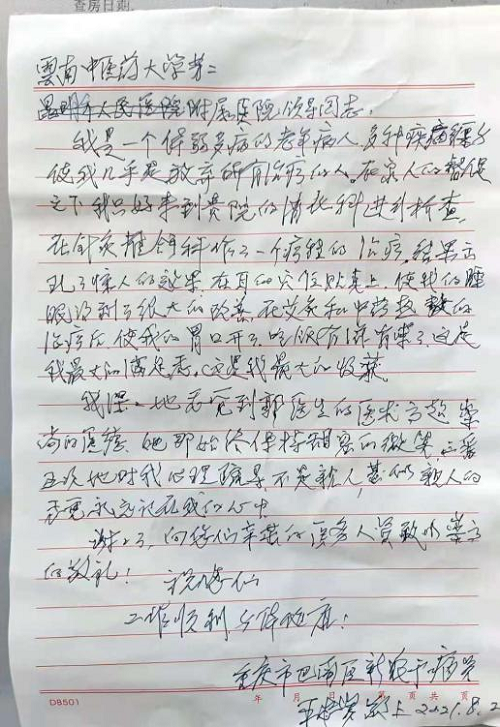 查房日期
雲南中医药大学第二
昆明市人民医院附属医院领导同志,
我是一个体弱多病的老年病人,多种疾病缠身
使我几乎是放弃所有治疗的人。在家人的督促
之下我只好来到贵院的 科进行检查。
在针灸 科作了一个疗程的治疗。结果出
现了惊人的效果,在耳的穴位贴豆上,使我的睡
眠得到了很大的改善,在艾灸和中药热 的
治疗后,使我的胃口开了,吃饭有滋有味了,这是
我最大的满足感,这是我最大的收获
我深深地感觉到郭医生的医术高超,崇
尚的医德,她那始终保持甜蜜的微笑,三番
五次地对我心理疏导,不是亲人,胜似亲人的
永远记在我的心中
谢谢了,向你们辛苦的医务人员致以崇高
的敬礼!
祝你们
工作顺利 身体健康!
重庆市巴南区 病员
上 2021.8.2
DB501 年 月 日 第 页 共 页